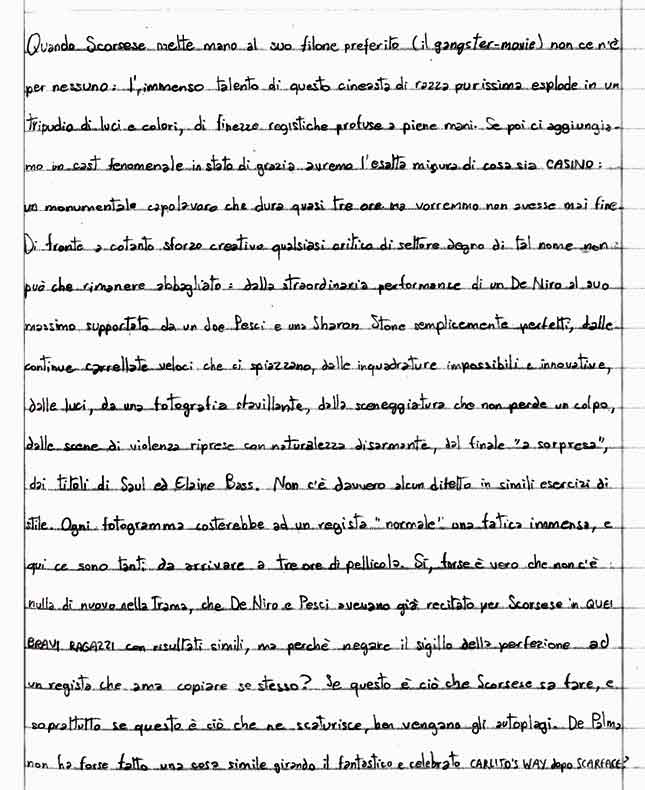 Quando Scorsese mette mano al suo filone preferito (il gangster-movie) non ce n'è
per nessuno: l'immenso talento di questo cineasta di razza purissima esplode in un
tripudio di luci e colori, di finezze registiche profuse a piene mani. Se poi ci aggiungia-
mo un cast fenomenale in stato di grazia avremo l'esatta misura di cosa sia CASINO:
un monumentale capolavoro che dura quasi tre ore ma vorremmo non avesse mai fine.
Di fronte a cotanto sforzo creativo qualsiasi critico di settore degno di tal nome non
può che rimanere abbagliato: dalla straordinaria performance di un De Niro al suo
massimo supportato da un Joe Pesci e una Sharon Stone semplicemente perfetti, dalle
continue carrellate veloci che ci spiazzano, dalle inquadrature impossibili e innovative,
dalle luci, da una fotografia sfavillante, dalla sceneggiatura che non perde un colpo,
dalle scene di violenza riprese con naturalezza disarmante, dal finale "a sorpresa",
dai titoli di Saul ed Elaine Bass. Non c'è davvero alcun difetto in simili esercizi di
stile. Ogni fotogramma costerebbe ad un regista "normale" una fatica immensa, e
qui ce sono tanti da arrivare a tre ore di pellicola. Sì, forse è vero che non c'è
nulla di nuovo nella trama, che De Niro e Pesci avevano già recitato per Scorsese in QUEI
BRAVI RAGAZZI con risultati simili, ma perchè negare il sigillo della perfezione ad
un regista che ama copiare se stesso? Se questo è ciò che Scorsese sa fare, e
soprattutto se questo è ciò che ne scaturisce, ben vengano gli autoplagi. De Palma
non ha forse fatto una cosa simile girando il fantastico e celebrato CARLITO'S WAY dopo SCARFACE?